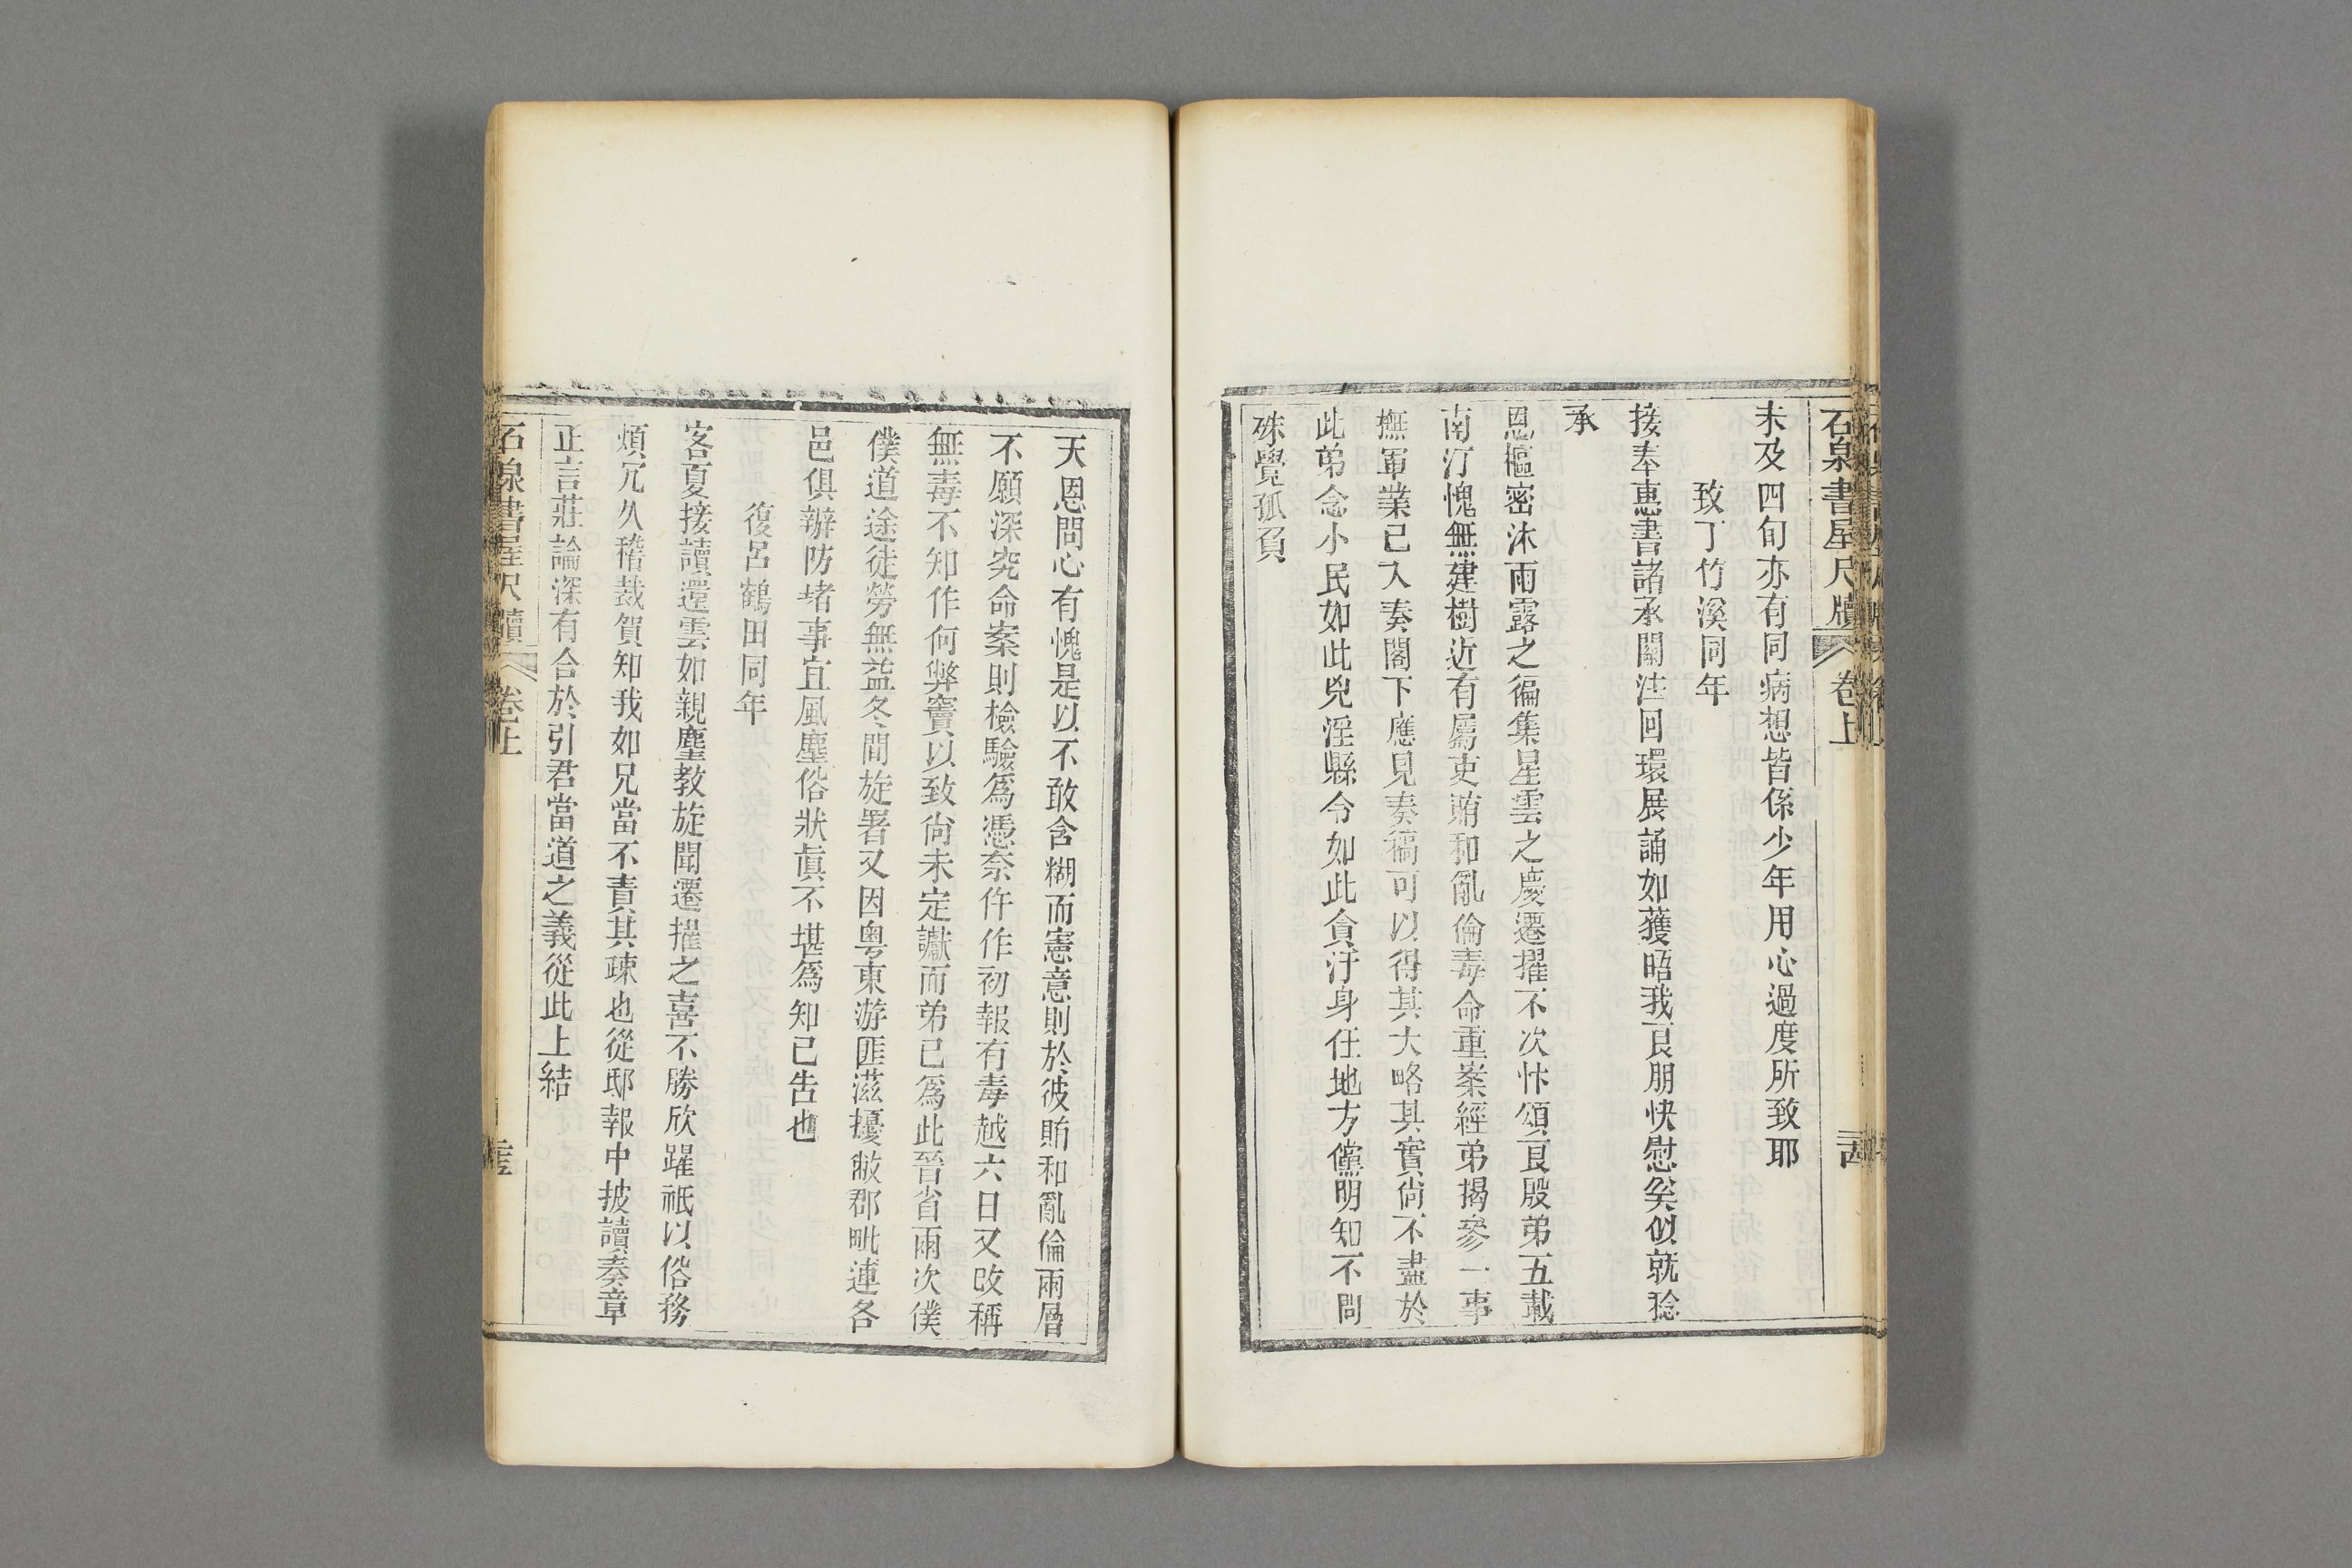 石泉書屋尺牘 卷上 二十四
未及四旬亦有同病想皆係少年用心過度所致耶
致丁竹溪同年
接奉惠書諸承關注回環展誦如獲晤我良朋快慰奚似就稔
承
恩樞密沐雨露之徧集星雲之慶遷擢不次忭頌良殷弟五載
南汀愧無建樹近有屬吏賄和亂倫毒命重案經弟揭參一事
撫軍業已入奏閣下應見奏稿可以得其大略其實尚不盡於
此弟念小民如此兇淫縣令如此貪汙身任地方儻明知不問
殊覺孤負
天恩問心有愧是以不敢含糊而憲意則於彼賄和亂倫兩層
不願深究命案則檢驗爲憑奈仵作初報有毒越六日又改稱
無毒不知作何弊竇以致尚未定讞而弟已爲此晉省兩次僕
僕道途徒勞無益冬間旋署又因粤東游匪滋擾敝郡毗連各
邑俱辦防堵事宜風塵俗狀眞不堪爲知己告也
復呂鶴田同年
客夏接讀還雲如親麈教旋聞遷擢之喜不勝欣躍祗以俗務
煩冗久稽裁賀知我如兄當不責其疎也從邸報中披讀奏章
正言莊論深有合於引君當道之義從此上結
石泉書屋尺牘 卷上